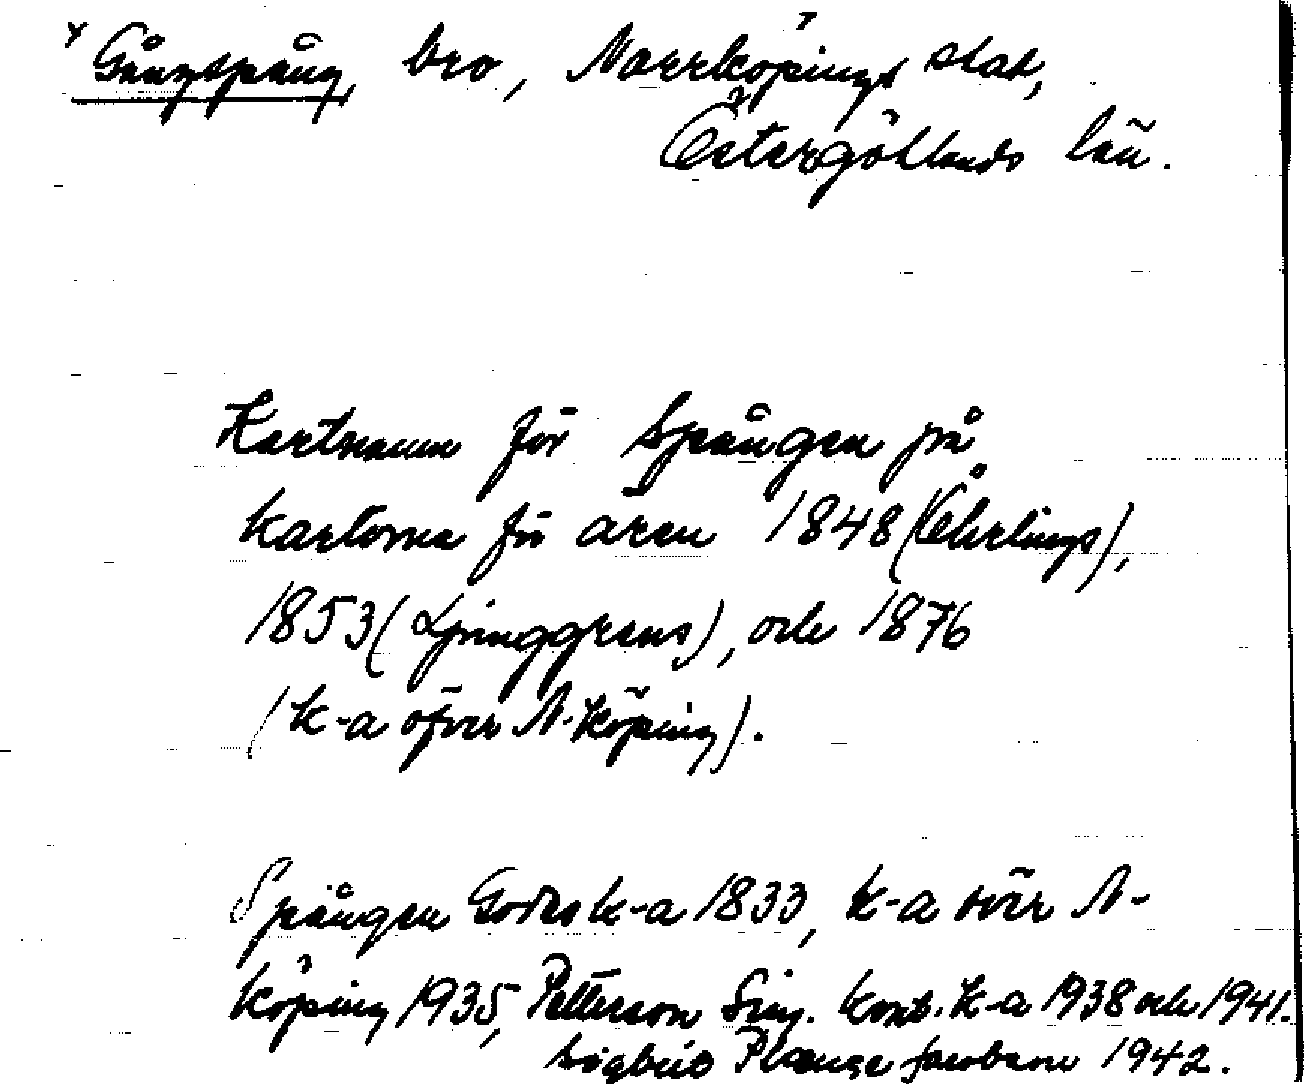 Gångspång, bro, Norrköpings stad,
Östergötlands län.
Kartnamn för Spången på
kartorna för åren 1848 (Öhrlings),
1853 (Ljunggrens), och 1876
(k-a öfver N-köping).
Spången Godes k-a 1833, k-a över N-
köping 1935, Petterson Ing. kont. k-a 1938 och 1941.
Sigbrid Plænge Jacobson 1942.